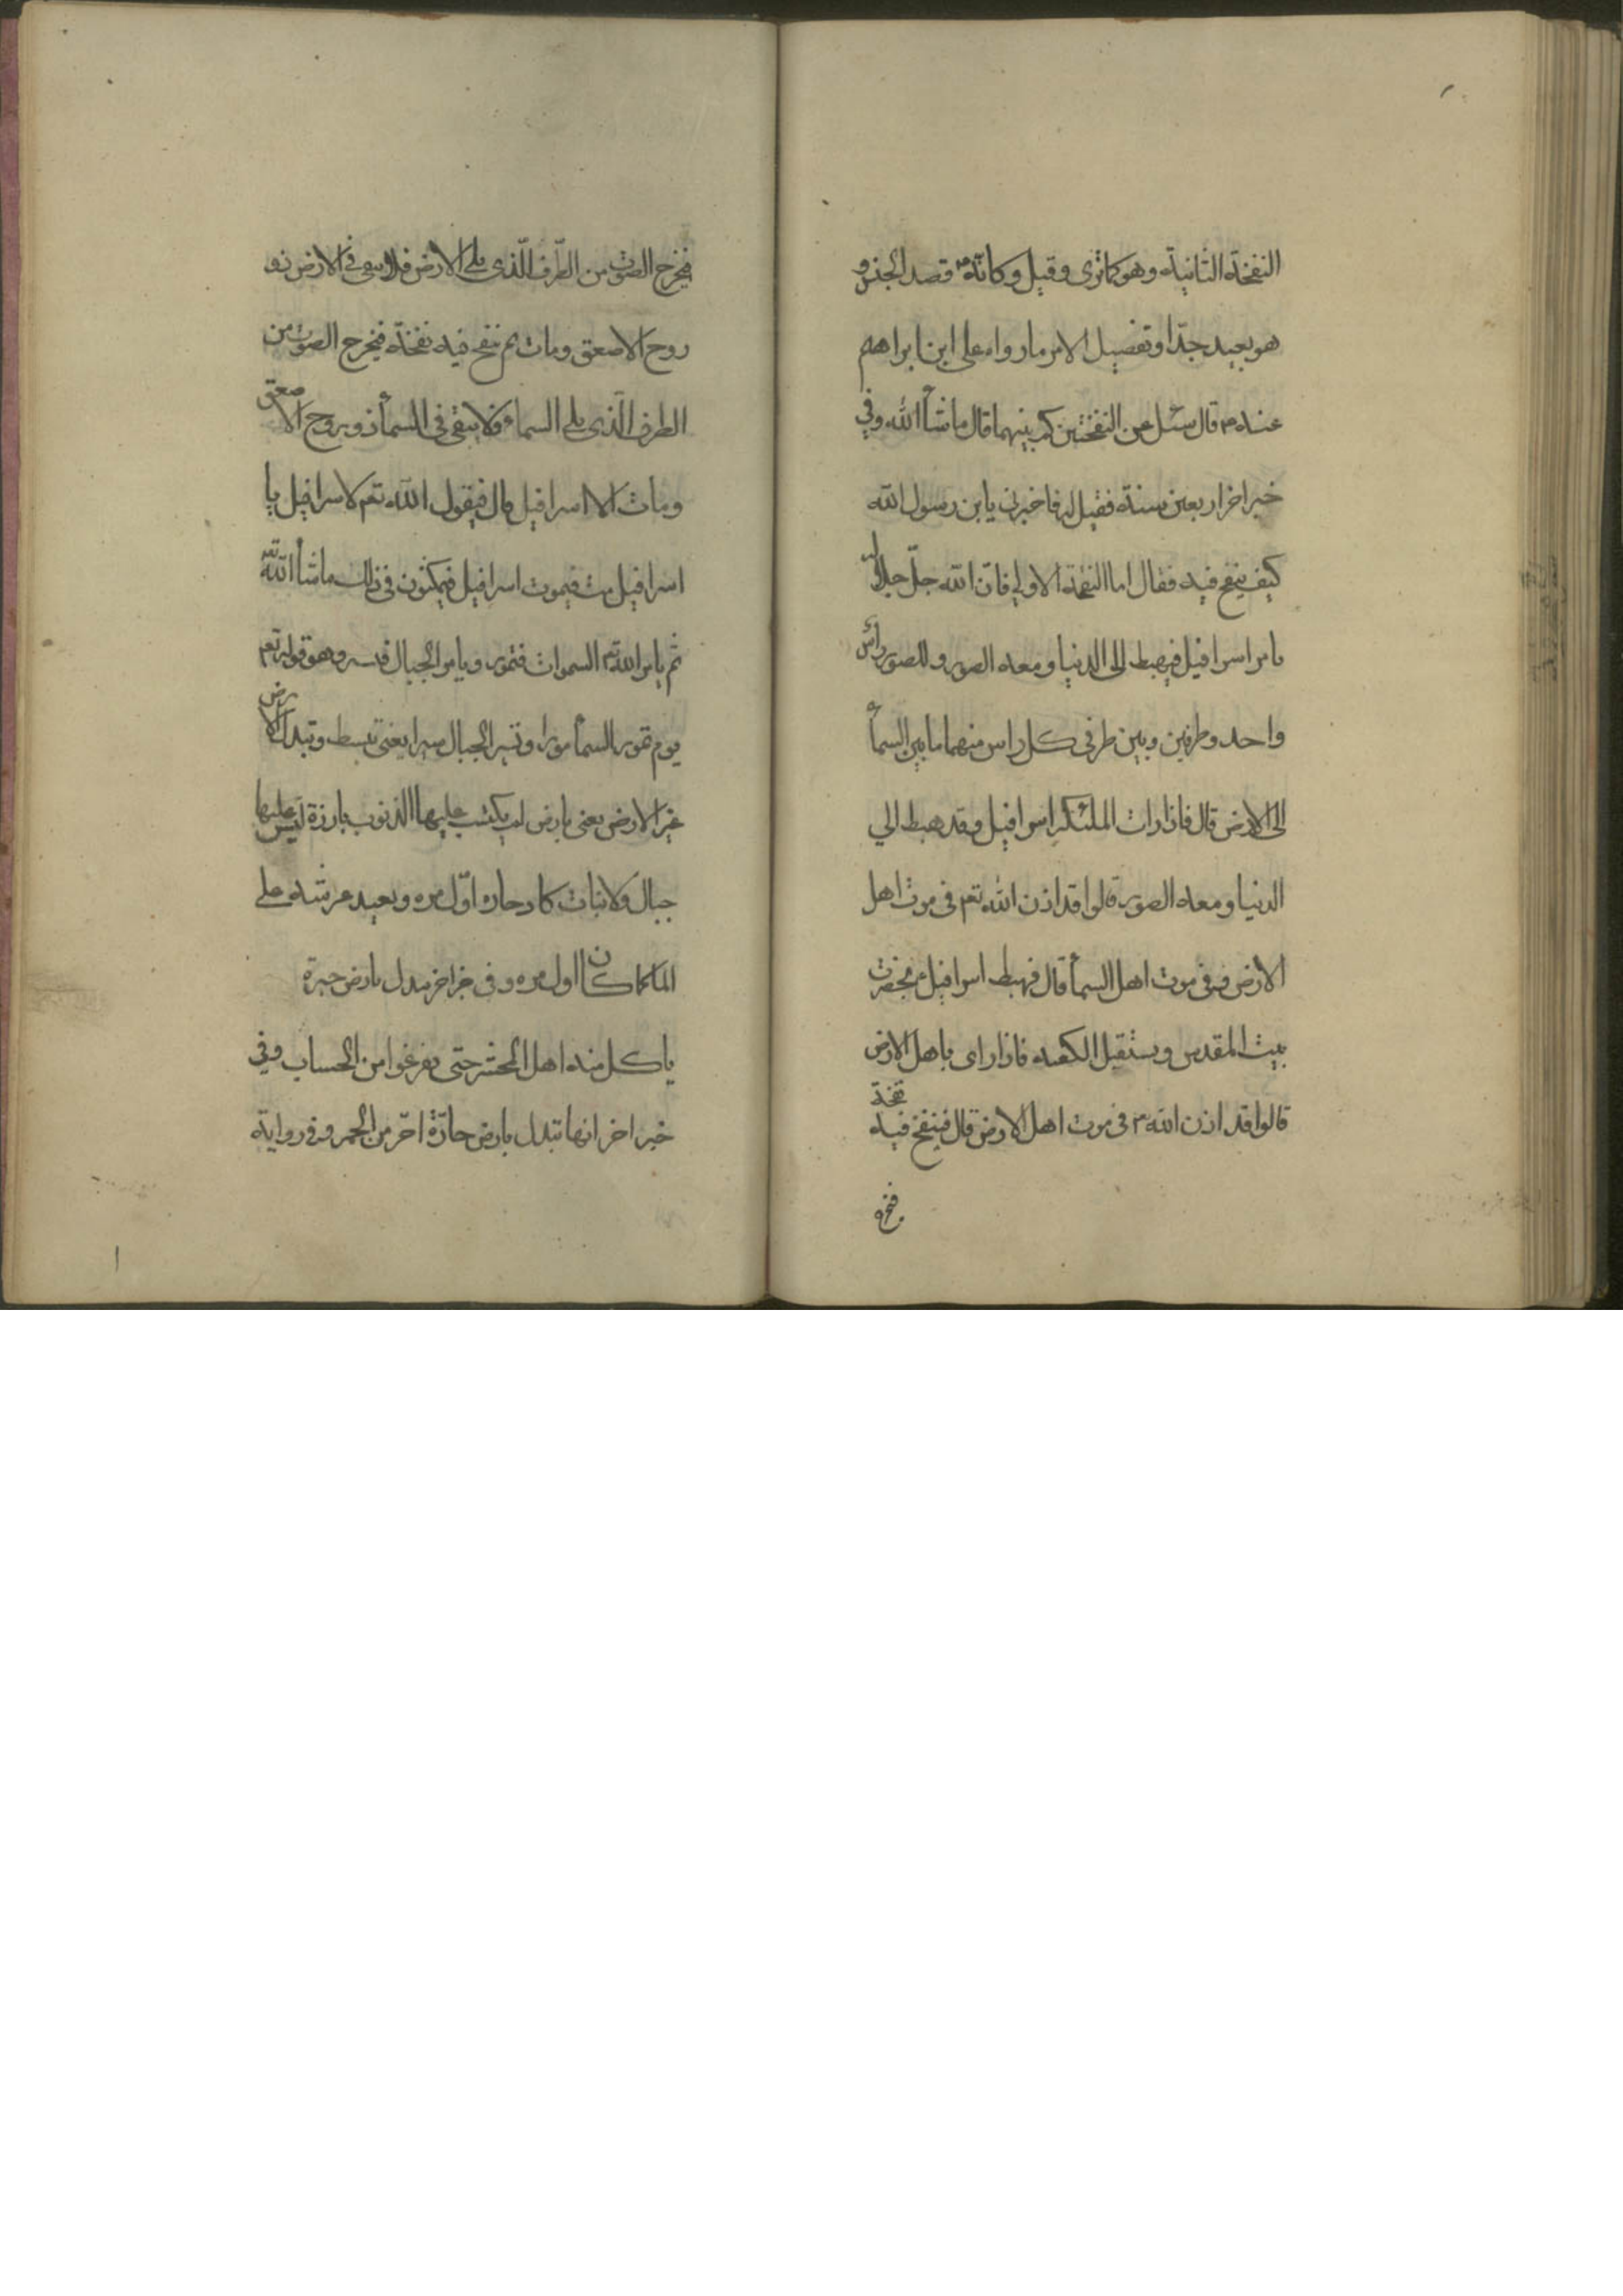 النفخة الثانية وهو كما ترى وقيل وكانه قصد الجن و
هو بعيد جدّا وتفصيل الامر ما رواه على ابن ابراهيم
عنه م قال سئل عن النفختين كم بينهما قال ما شأ الله وفي
خبر اخر اربعين سنة فقيل له فاخبرنى يابن رسول الله
كيف ينفخ فيه فقال اما النفخة الاولي فانّ الله جلّ جلاله
يامر اسرافيل فيهبط الى الدنيا ومعه الصور وللصور رأس
واحد وطرفين وبين طرفى كل راس منهما ما بين السمأ
الى الارض قال فاذا رات الملئكة اسرافيل وقد هبط الي
الدنيا ومعه الصور قالوا قد اذن الله تعم فى موت اهل
الارض وفى موت اهل السمأ قال فهبط اسرافيل ع بحضرت
بيت المقدس ويستقبل الكعبه فاذا راى باهل الارض
قالوا قد اذن الله م فى موت اهل الارض قال فينفخ فيه نفخة
فيخرج
فيخرج الصوت من الطّرف الّذى يلى الارض فلا يبقى فى الارض ذو
روح الا صعق ومات ثم ينفخ فيه نفخة فيخرج الصوت من
الطرف الّذى يلى السمأ فلا يبقى فى السمأ ذو روح الا صعق
ومات الا اسرافيل قال فيقول الله تعم لاسرافيل يا
اسرافيل مت فيموت اسرافيل فيمكثون فى ذلك ما شأ الله
ثم يامر الله تم السموات فتمور ويامر الجبال فتسير وهو قوله تعم
يوم تمور السمأ مورا وتسير الجبال سيرا يعنى تبسط وتبدل الارض
غير الارض يعنى بارض لم يكتسب عليها الذنوب بارزة ليس عليها
جبال ولا نبات كما دحاها اوّل مره ويعيد عرشه على
الماء كما كان اول مره وفى خبر اخر تبدل بارض خبزة
ياكل منه اهل المحشر حتى يفرغوا من الحساب وفي
خبر اخر انها تبدل بارض حارّة احّر من الجمر وفى رواية